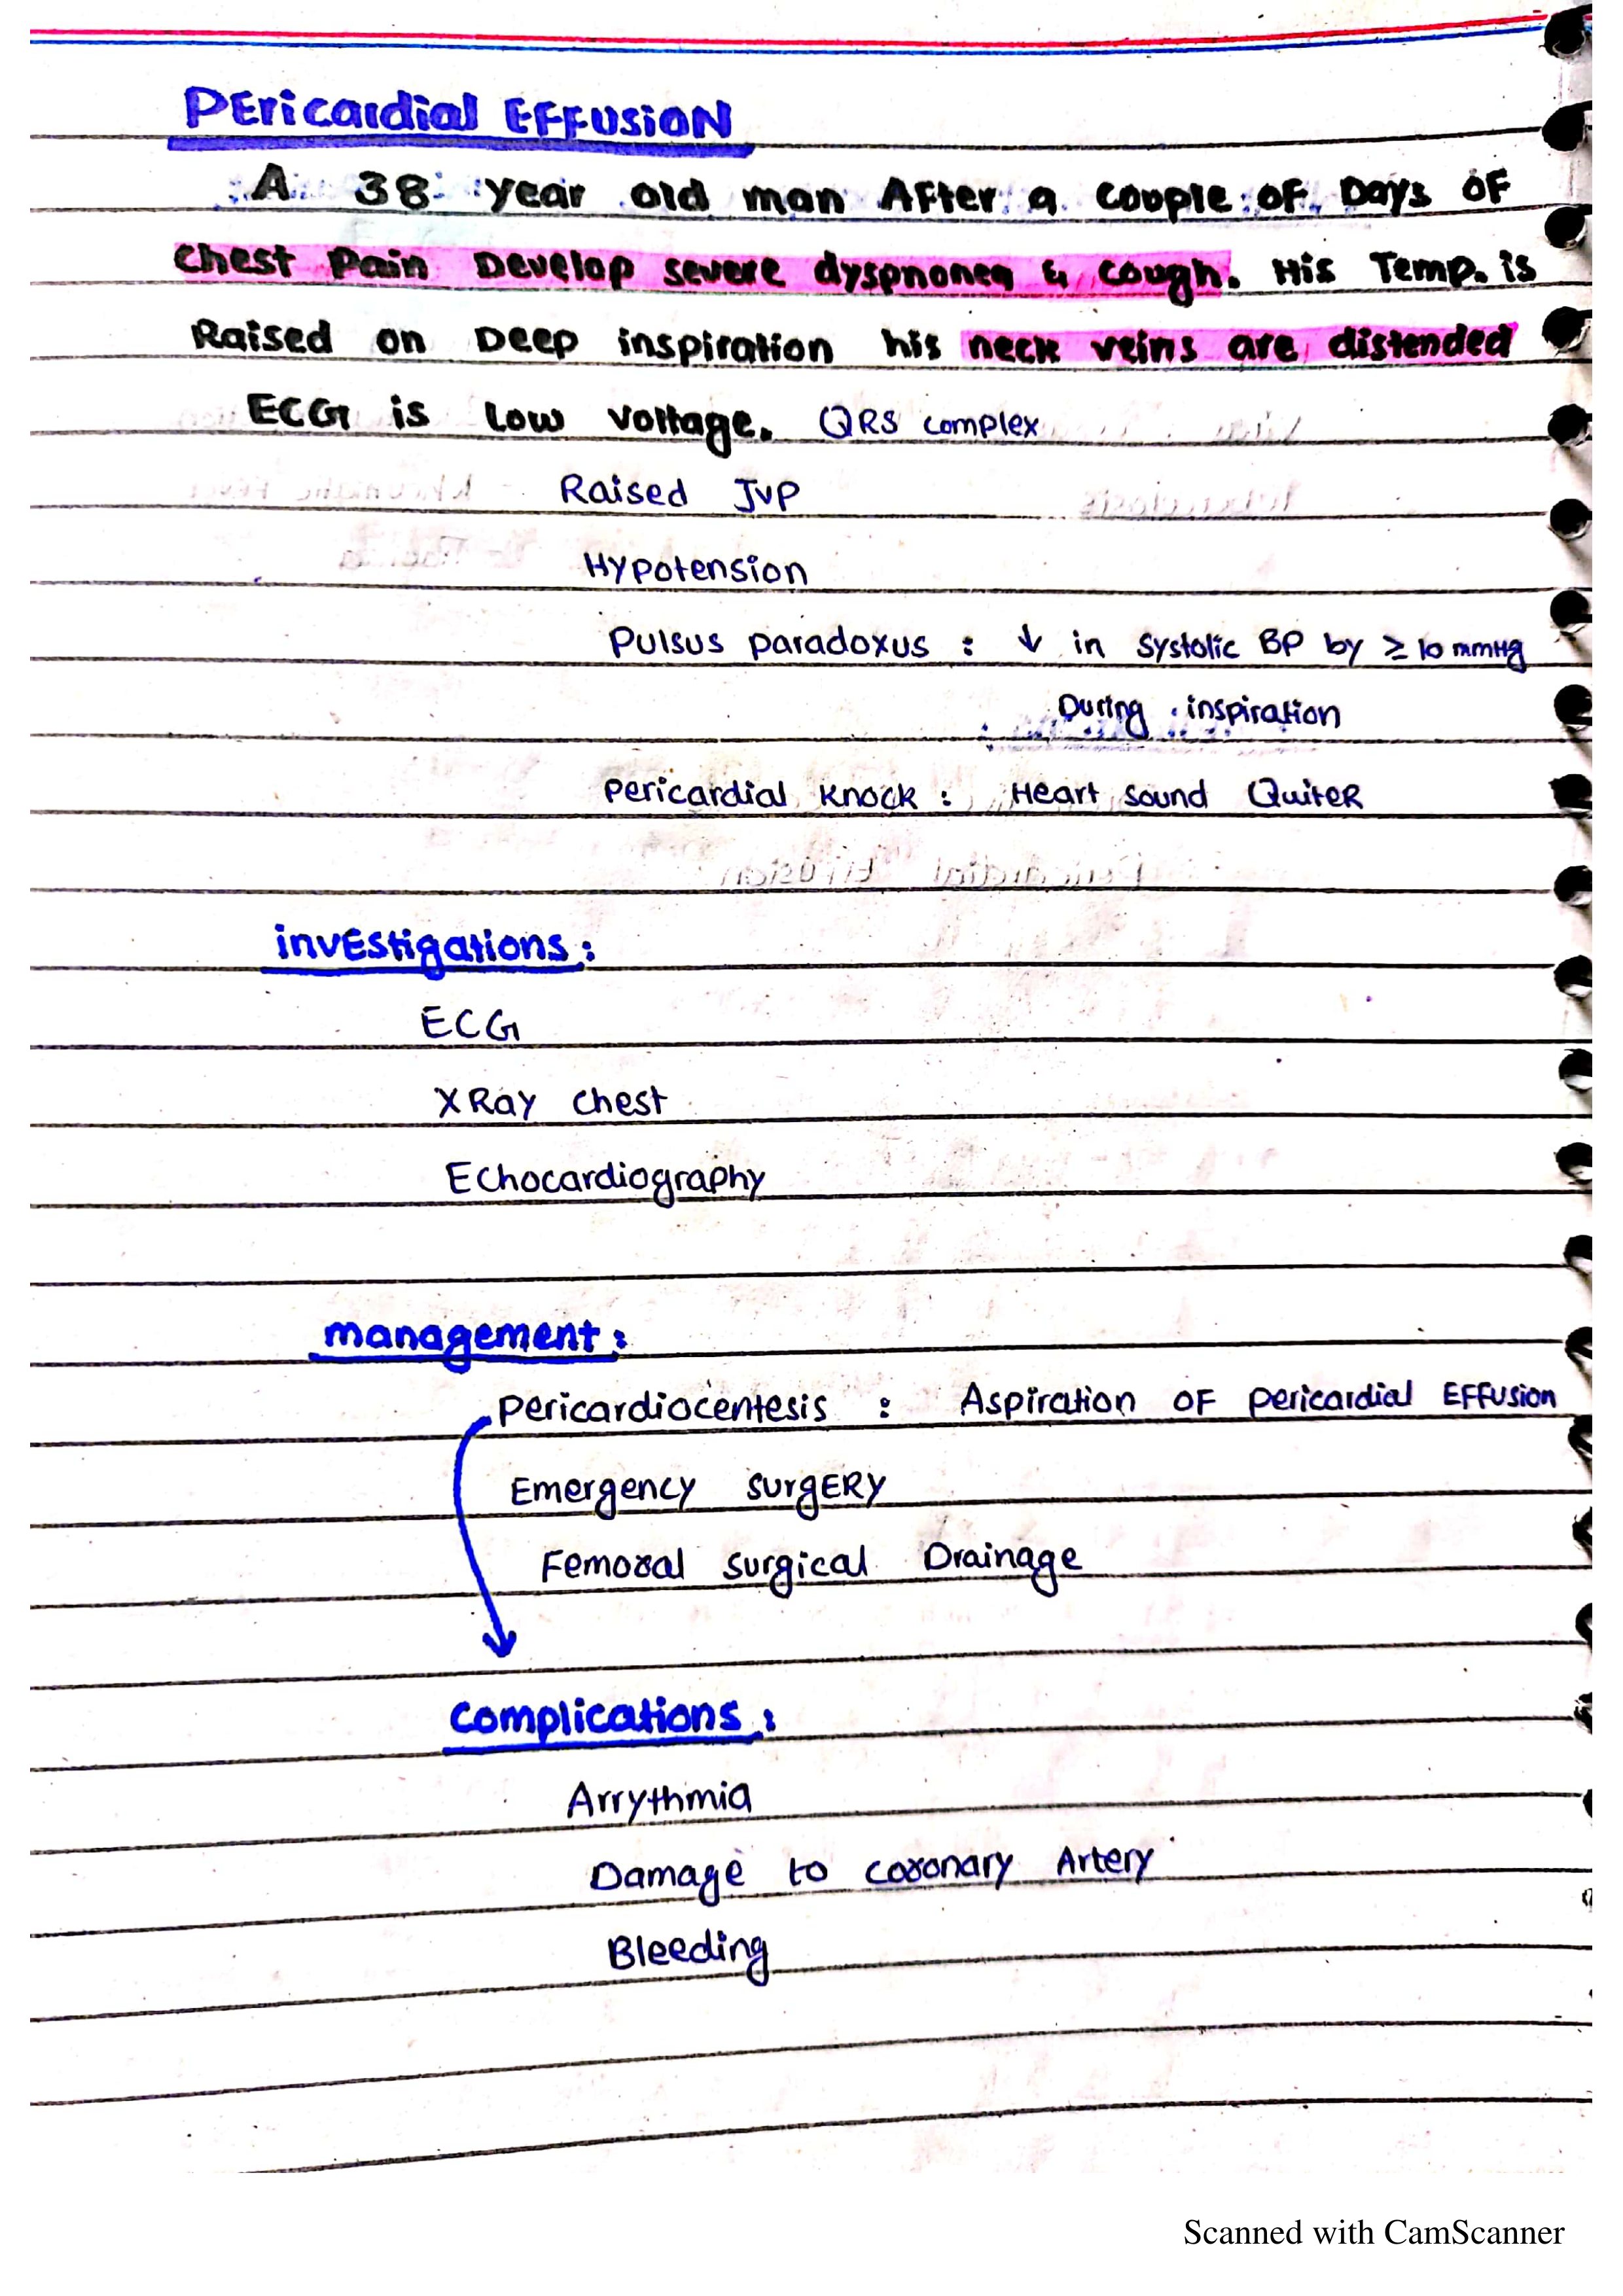 PEricardial EFFUSION
A 38 year old man After a couple of Days of
chest Pain Develop severe dyspnonea & cough. His Temp. is
Raised on Deep inspiration his neck veins are distended
ECG is Low voltage. QRS complex
Raised JVP
Hypotension
Pulsus paradoxus : ↓ in systolic BP by ≥ 10 mmHg
During inspiration
Pericardial Knock : Heart sound Quiter
investigations :
ECG
XRay chest
Echocardiography
management :
Pericardiocentesis : Aspiration OF pericardial EFFusion
Emergency surgERY
Femoral surgical Drainage
complications :
Arrythmia
Damage to coronary Artery
Bleeding
Scanned with CamScanner